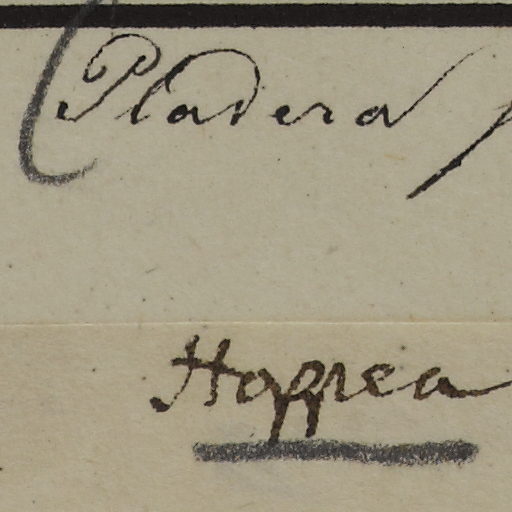 Pladera
Hoppea